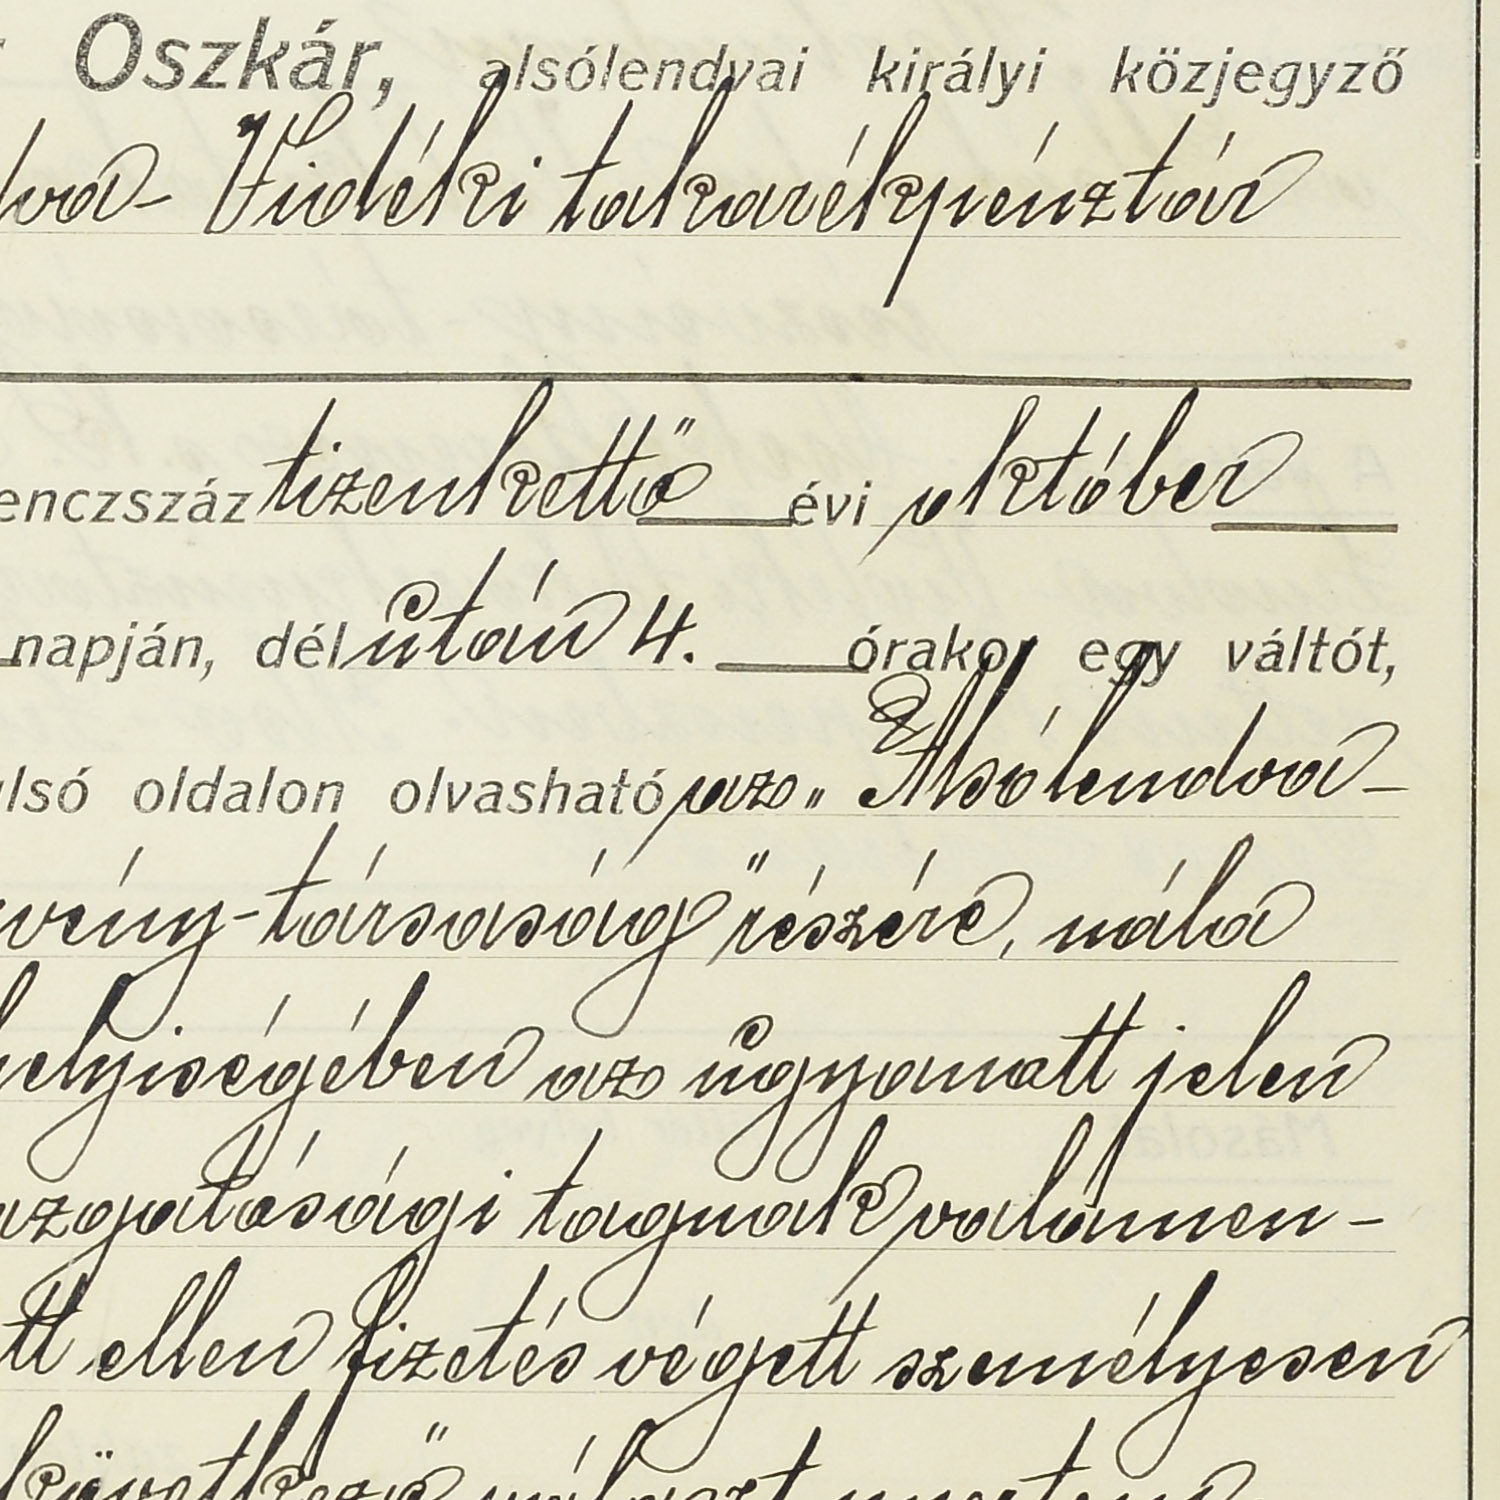 Oszkár, alsólendvai királyi közjegyző
Vidéki takarékpénztár
enczszáz tizenkettő évi október
napján, délután 4. órakor egy váltót,
ulsó oldalon olvasható az „Alsólendva-
vény-társaság" részére, nála
helyiségében az ugyanott jelen
azgatósági tagnak valamen-
tt ellen fizetés végett személyesen
következő választ